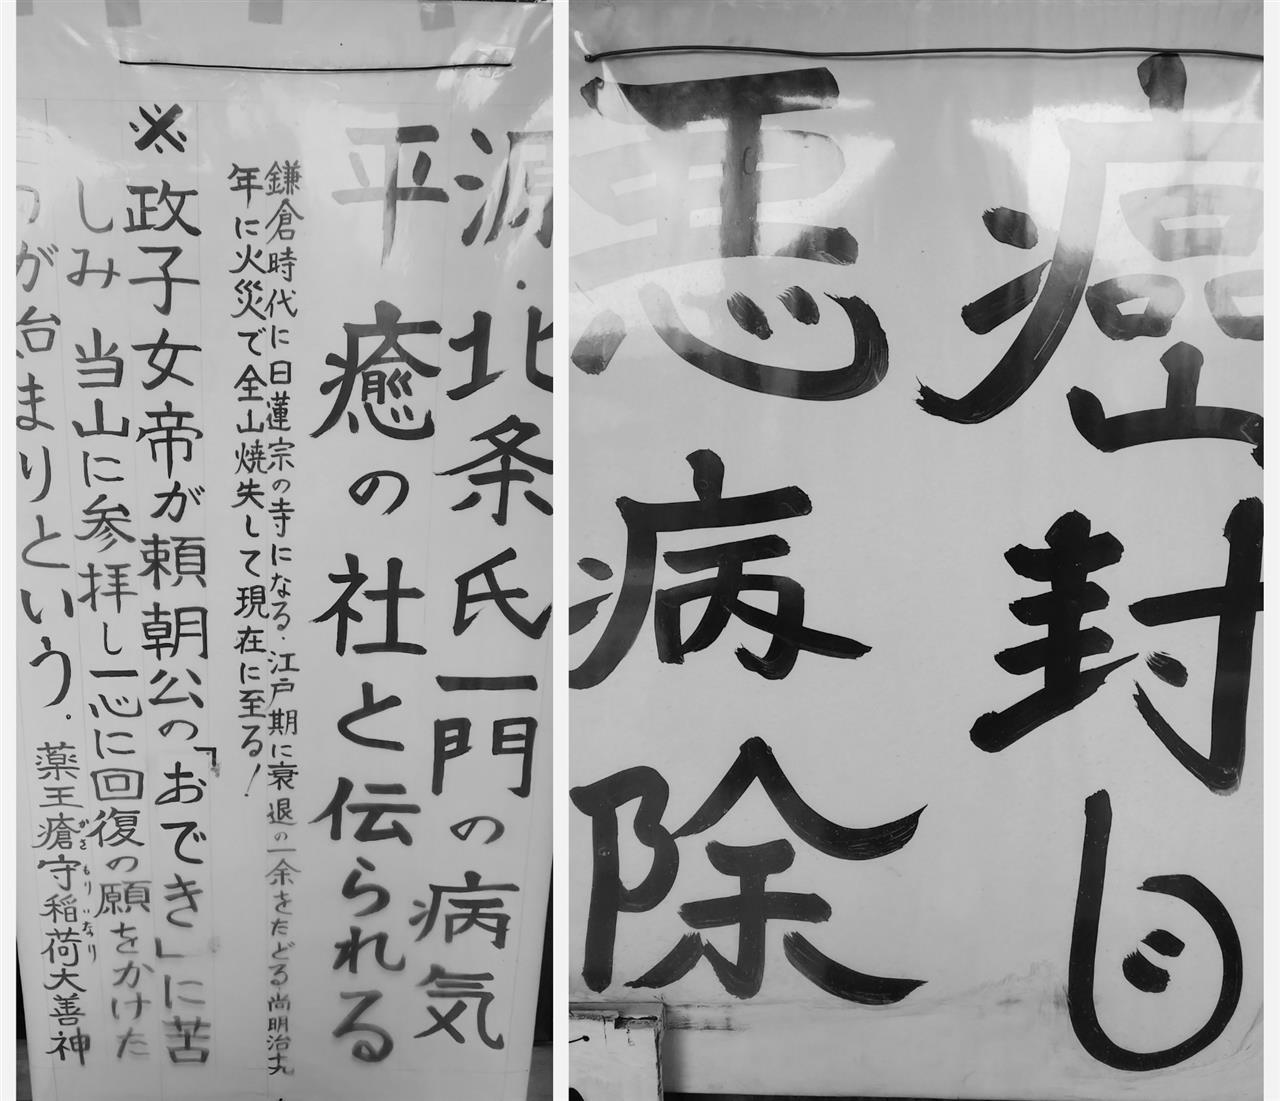 源・北条氏一門の病気
平癒の社と伝られる
鎌倉時代に日蓮宗の寺になる.江戸期に衰退の一余をたどる尚明治九
年に火災で全山焼失して現在に至る!
※政子女帝が頼朝公の「おでき」に苦
しみ 当山に参拝し一心に回復の願をかけた
が治まりという.
薬王瘡守稲荷大善神
かさもりいなり
癌封じ
悪病除